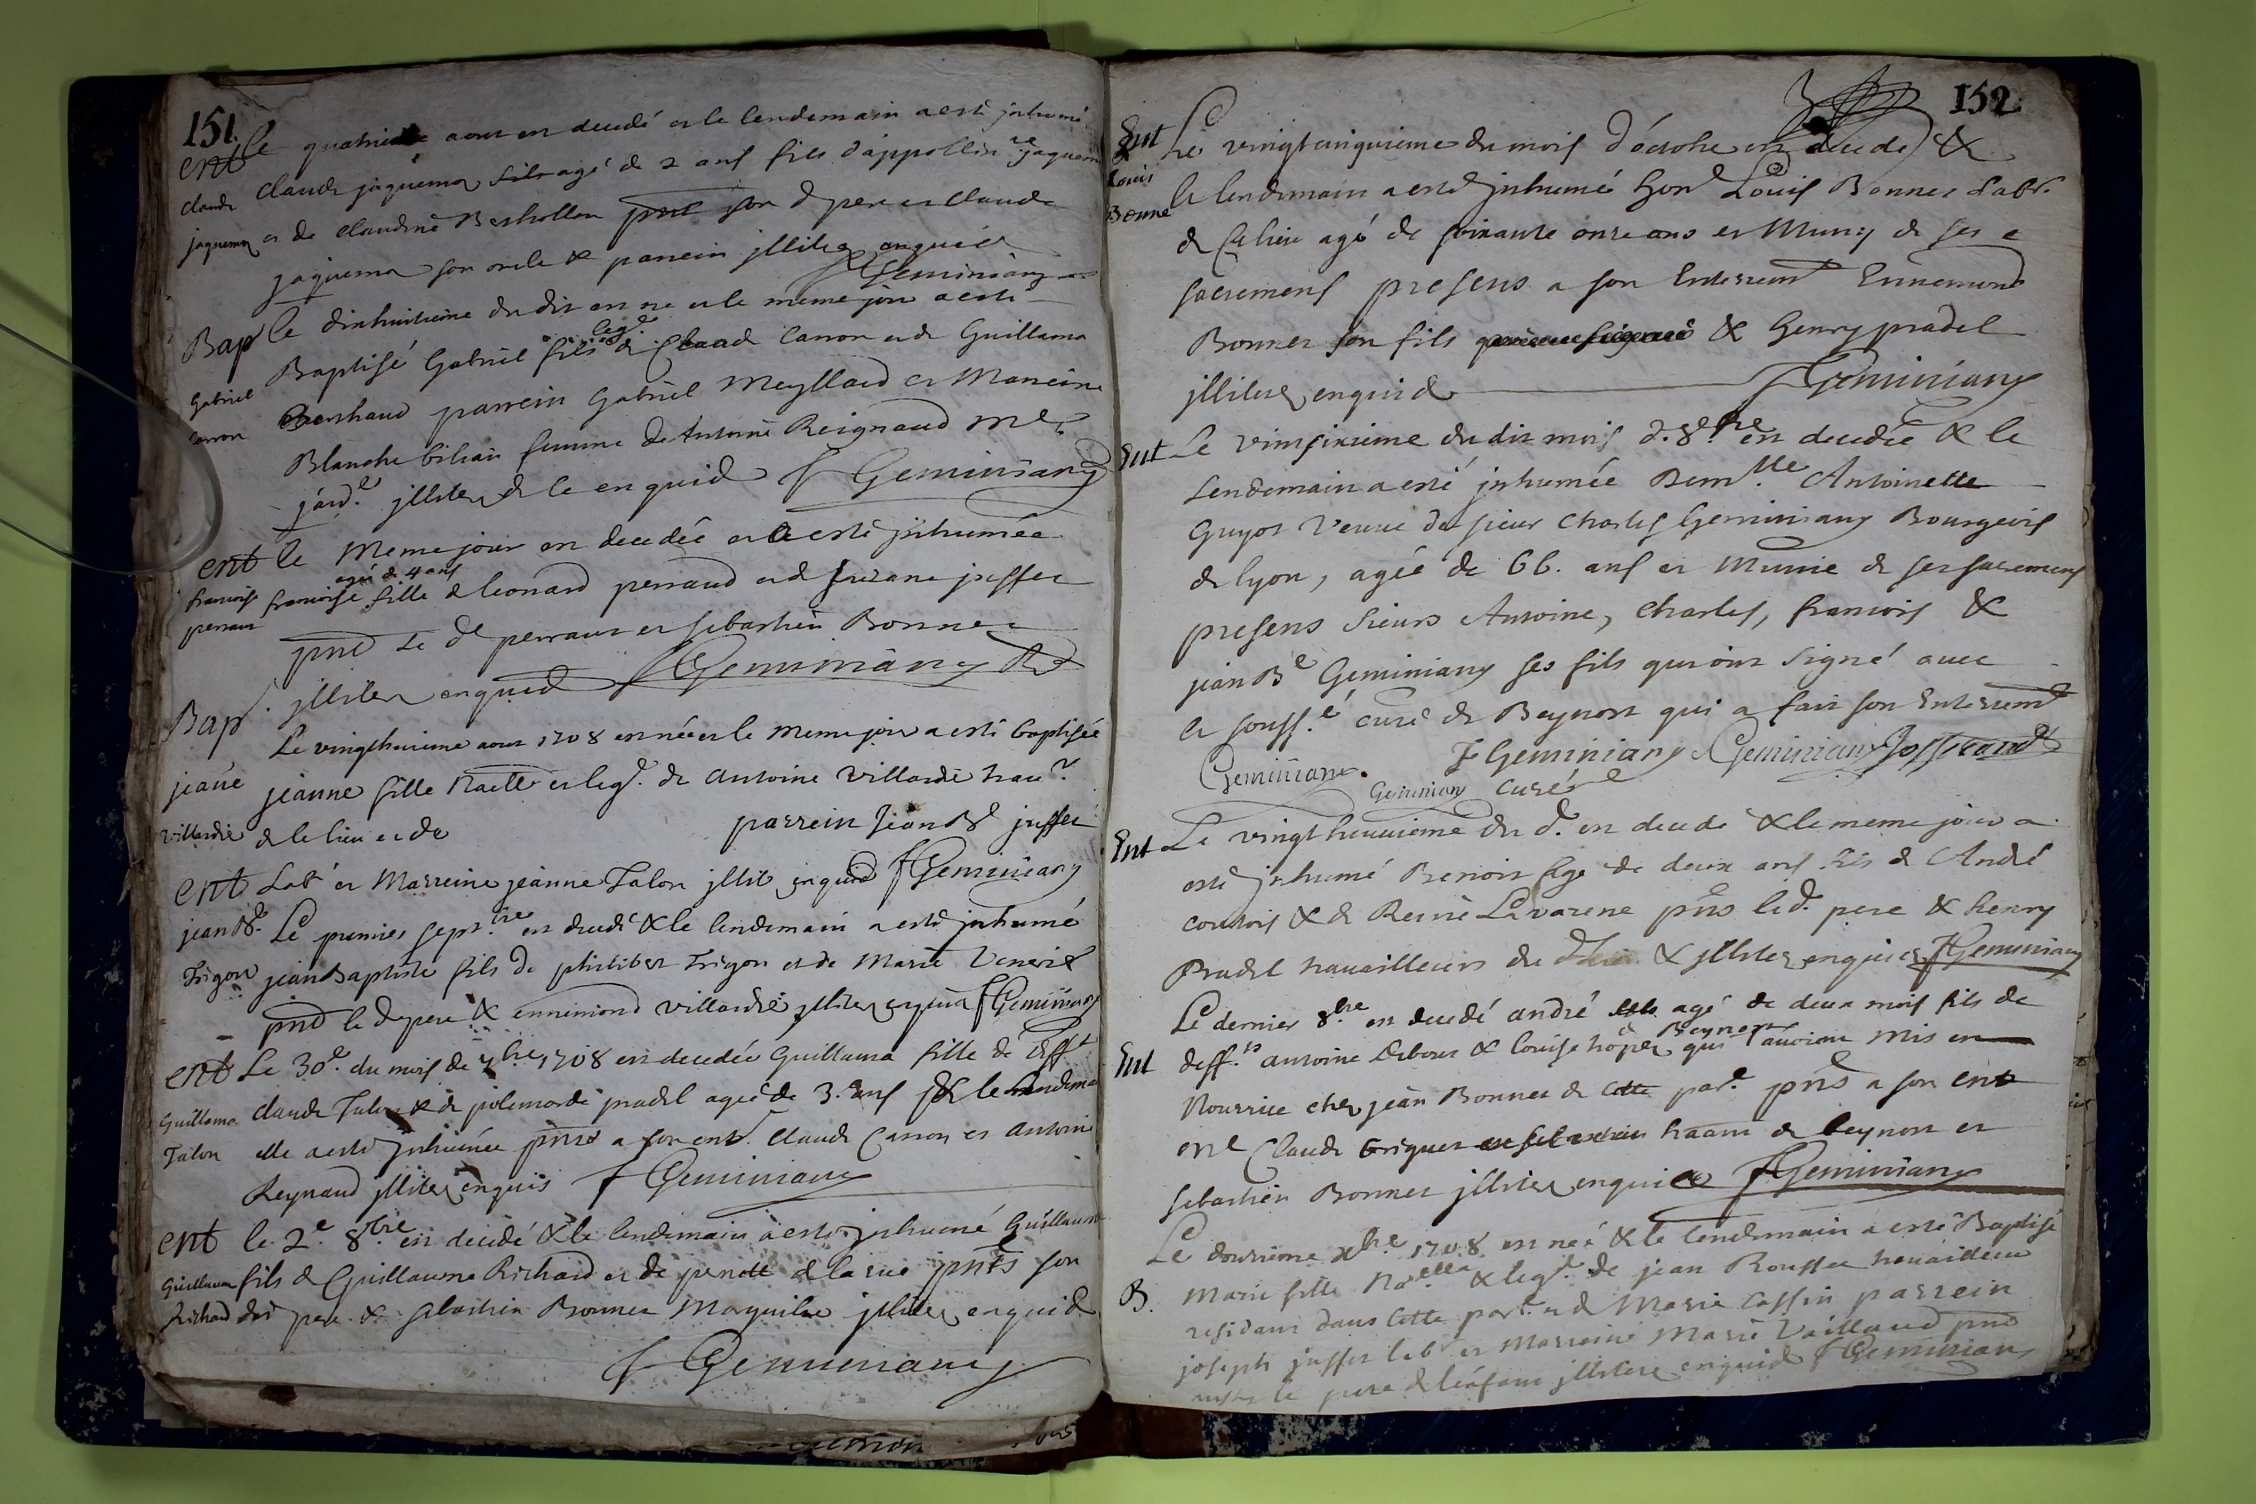 151.
ent le quatrieme aout est decedé et le lendemain a esté inhumé
claude claude jaquemer agé de 2 ans fils d'appollin re jaquem
jaquemer et de claudine Berthollon pnt son d pere et claude
jaquemer son oncle & parrein jlliter enquis
f Geminiany
Bap le dixhuitieme du dit est né et le meme jour a esté
Baptisé Gabriel fils legd. de Claude Carron et de Guillama
Gabriel
carron Berthaud parrein Gabriel Meyllard et Marreine
Blanche bilian femme de Antoine Reignaud Me
jard.e jlliter de ce enquid f Geminiany
ent le Meme jour est decedée et a esté jnhumée
agée de 4 ans
francoise francoise fille de leonard perraud et de suzane juffet
perraut
pnt le de perraut et sebastien Bonnet
jlliter enquid f Geminiany
Bap. Le vingthuitieme aout 1708 est née et le meme jour a esté baptisée
jeane jeanne fille Naelle et legd. de antoine villardie traur.
villardie de le lieu et de parrein Jean Bd juffet
ent Labr et Marreine jeanne Talon jllit enquid f Geminiany
jean Bd. Le premier septbre est decedé & le lendemain a esté jnhumé
Trigon jean Baptiste fils de philibert Trigon et de Marie
pnt le d pere & ennemond villardie jlliter enquid f Geminiany
ent Le 30e. du mois de 7bre 1708 est decedée Guillama fille de deff t
Guillama claude Talon & de polemarde pradel agée de 3. ans & le lendema
Talon elle a esté jnhumée pnts a son entt. claude Carron et antoine
Reynaud jlliter enquis f Geminiany
ent le 2e 8bre est decedé & le lendemain a esté jnhumé Guillaume
Guillaume fils de Guillaume Richard et de pernette de la rue pnts son
Richard dit pere & sebastien Bonnet Marguilier jlliter enquid
f Geminiany
152
Ent Le vingtcinquieme du mois d'octobre est decedé &
Louis
Bonne le lendemain a esté jnhumé hond Louis Bonnet labr.
de ce lieu agé de soixante onze ans et Muny de ses
sacremens presens a son Enterremt Ennemond
Bonnet son fils & Henry pradel
jlliter enquid f Geminiany
Ent Le vintsixieme du dit mois d. 8bre est decedée & le
Lendemain a esté jnhumée Demlle Antoinette
Guyot Veuve de sieur Charles Geminiany Bourgeois
de lyon, agée de 66. ans et Munie de ses sacremens
presens sieurs Antoine, charles, francois &
jean Be Geminiany ses fils qui ont signé avec
le souss.é curé de Beynost qui a fait son Enterremt
Geminiany. f Geminiany Geminiany Josserand
Geminiany curé
Ent Le vingt huitieme du d. est decedé & le meme jour a
esté jnhumé Benoit age de deux ans fils de André
courtois & de Reine Lavarene pns led. pere & henry
Pradel travailleurs du d lieu & jlliter enquis f Geminiany
Le dernier 8bre est decedé andré agé de deux mois fils de
Ent deff.ts antoine & louise Beynost qui l'avoient mis en
Nourrice chez jean Bonnet de cette pare pns a son ent
ent Claude briguet traanr de beynost et
sebastien Bonnet jlliter enquis f Geminiany
Le douzieme xbre. 1708. est née & le lendemain a esté Baptisé
B. Marie fille Naelle & legt. de jean Rousset travailleur
residant dans cette part. et de Marie Cassin parrein
joseph juffet labr et Marreine Marie Vaillaud pnt
le pere de l'enfant jlliter enquid f Geminiany